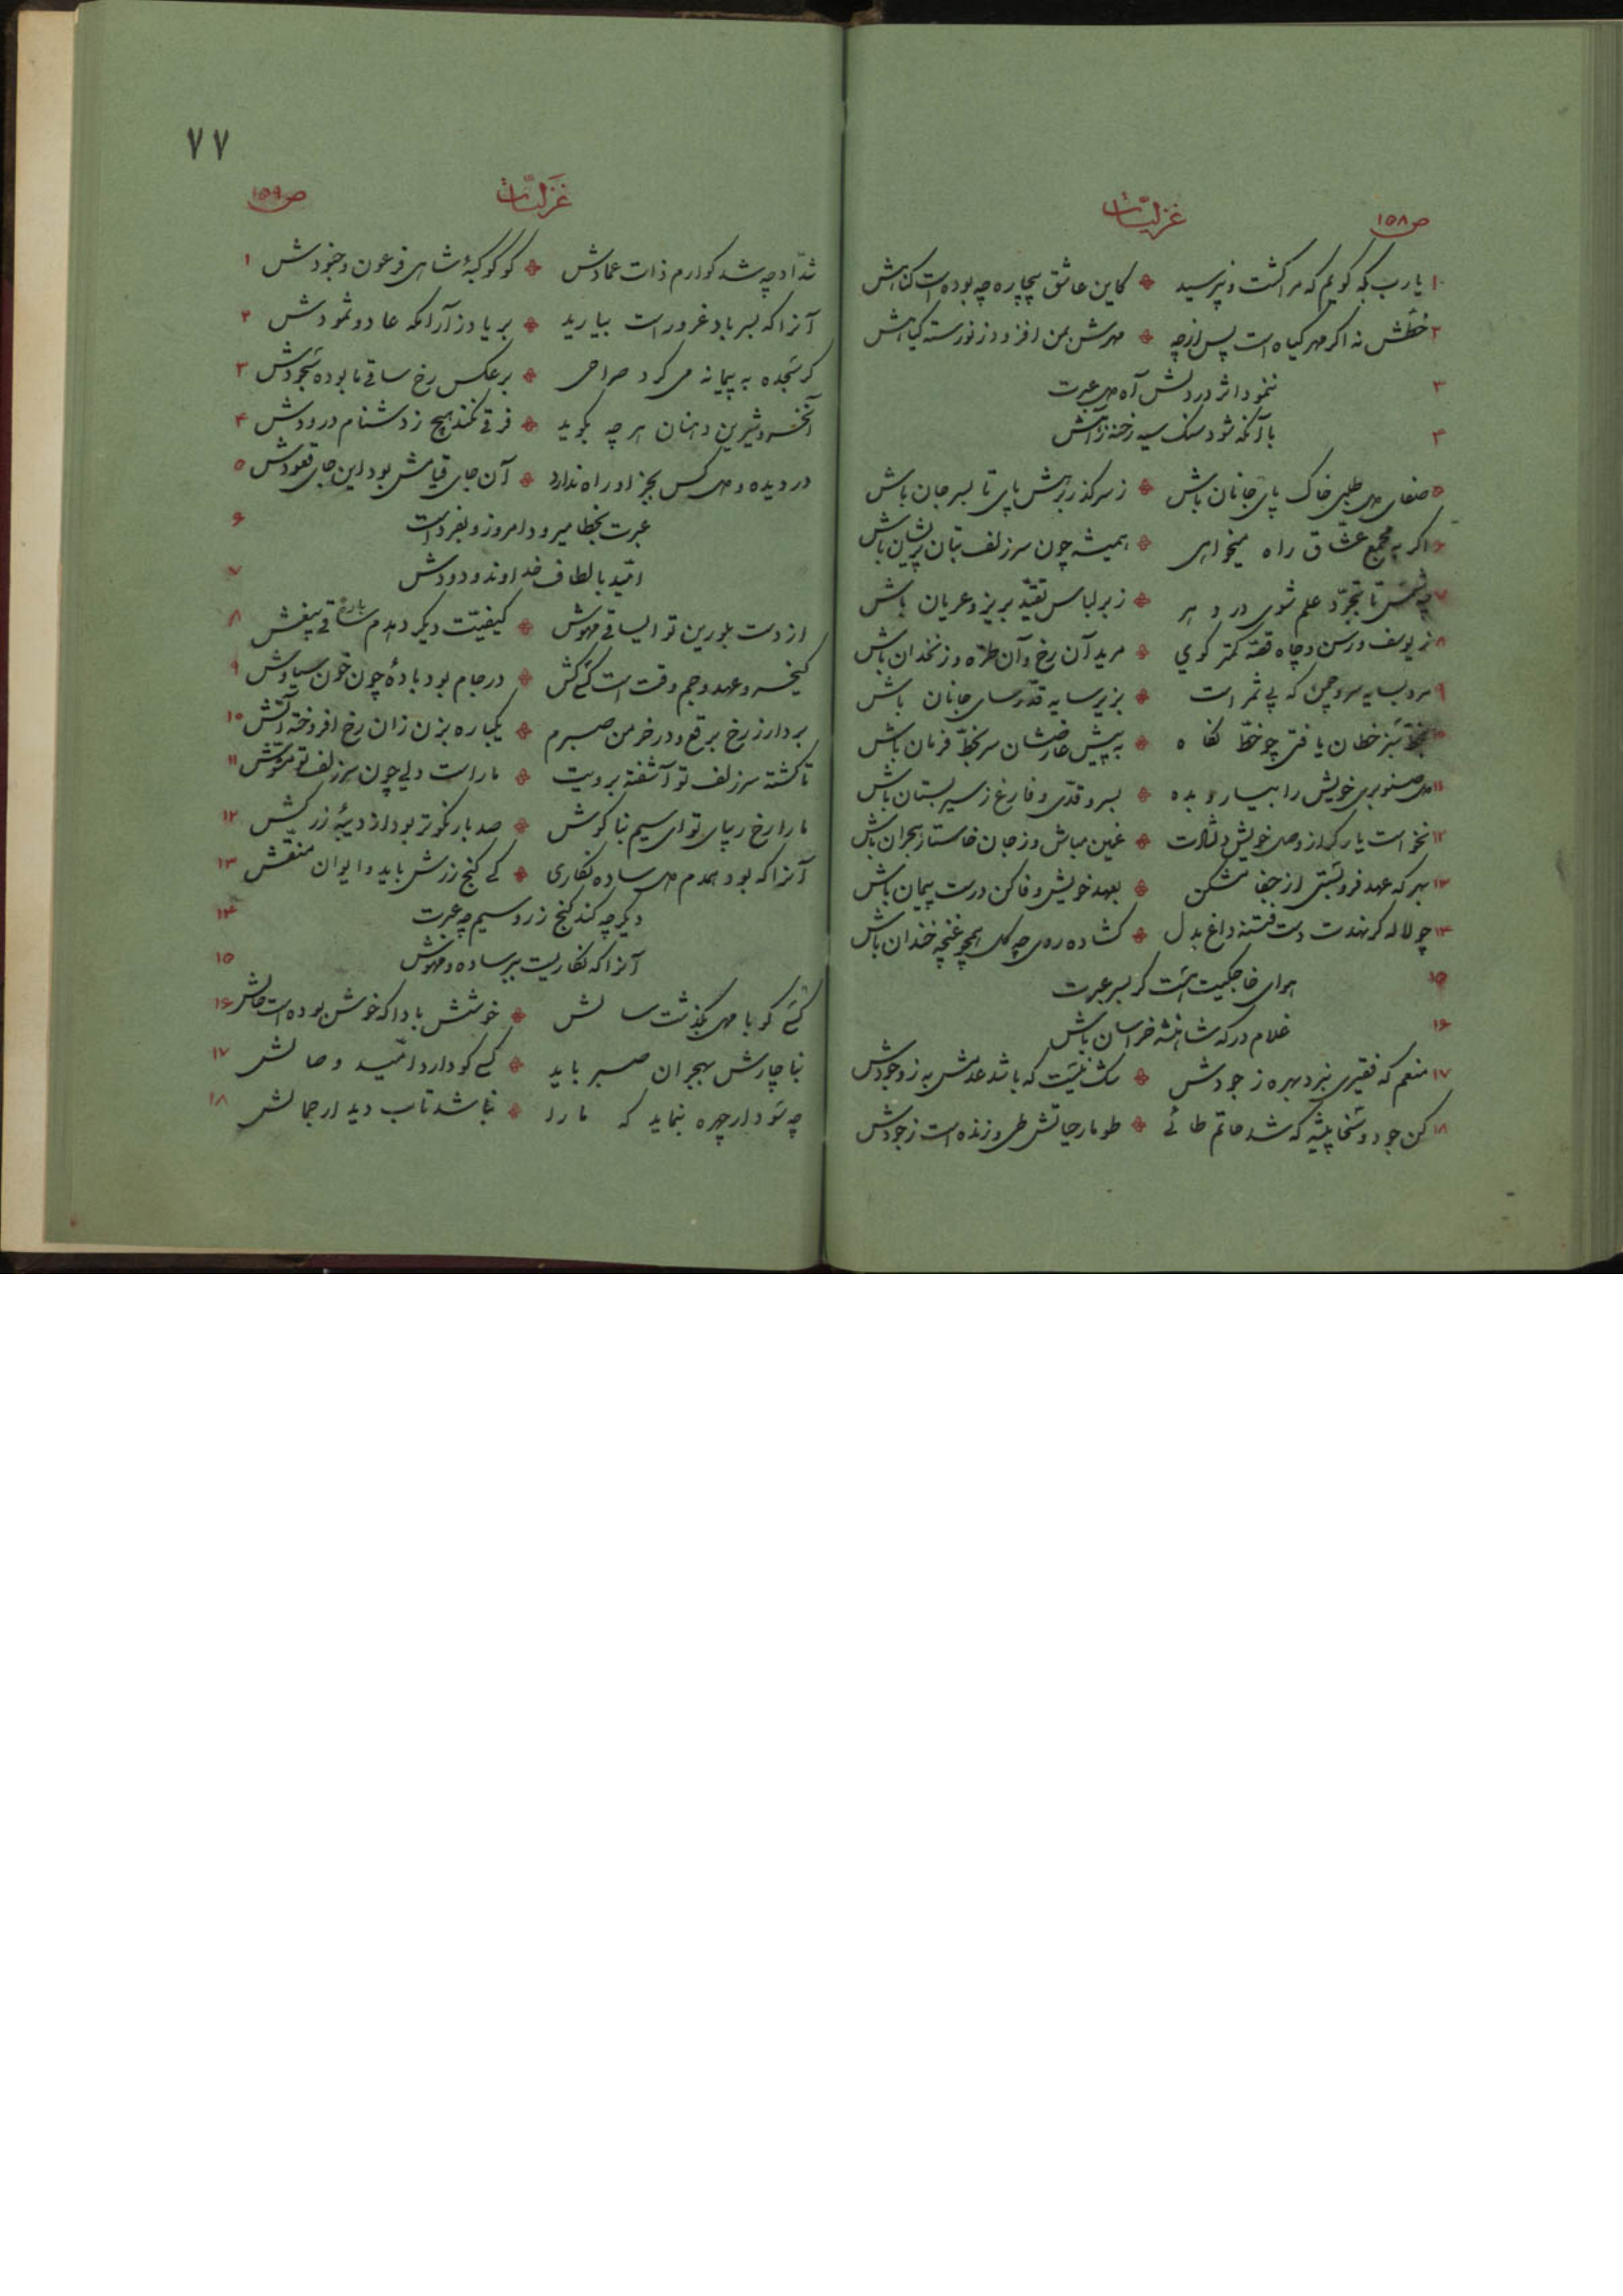 غزلیّات ص۱۵۸
۱ یارب بکه گویم که مرا کشت و نپرسید ❖ کاین عاشق بیچاره چه بوده است کناهش
۲ خطش نه اگر مهر کیاه است پس از چه ❖ مهرش بمن افزود ز نورسته کیاهش
۳ ننمود اثر در دلش آه دل عبرت
۴ با آنکه شود سنک سیه رخنه ز آهش
۵ صفای دل طلبی خاک پای جانان باش ❖ ز سر گذر برهش پای تا بسر جان باش
۶ اگر به مجمع عشاق راه میخواهی ❖ همیشه چون سر زلف بتان پریشان باش
۷ تا بتجرّد علم شوی در دهر ❖ ز بر لباس تقیّد بریز و عریان باش
۸ ز یوسف و رسن و چاه قصّه کمتر کوی ❖ مرید آن رخ و آن طرّه و زنخدان باش
۹ مرو بسایه سرو چمن که بی ثمر است ❖ بزیر سایه قدّ رسای جانان باش
۱۰ بخطّ سبز خطان یافتی چو خطّ نکاه ❖ به پیش عارضشان سر بخطّ فرمان باش
۱۱ دل صنوبری خویش را بیار و بده ❖ بسرو قدّی و فارغ ز سیر بستان باش
۱۲ نخواست یار کر از وصل خویش دلشادت ❖ غمین مباش و ز جان خواستار هجران باش
۱۳ بهر که عهد فرو بستی از جفا مشکن ❖ بعهد خویش وفا کن درست پیمان باش
۱۴ چو لاله کر نهدت دست فتنه داغ بدل ❖ کشاده روی چه کل همچو غنچه خندان باش
۱۵ هوای خواجکیت هست کر بسر عبرت
۱۶ غلام درکه شاهنشه خراسان باش
۱۷ منعم که فقیری نبرد بهره ز جودش ❖ شک نیست که باشد عدمش به ز وجودش
۱۸ کن جود و سخا پیشه که شد حاتم طائی ❖ طومار حیاتش طی و زنده است ز جودش
۷۷
غزلیّات ص۱۵۹
شدّاد چه شد کو ارم ذات عمادش ❖ کو کوکبهٔ شاهی فرعون و جنودش ۱
آنرا که بسر باد غرور است بیارید ❖ بر یاد ز آرامکه عاد و ثمودش ۲
کر سجده به پیمانه می کرد صراحی ❖ بر عکس رخ ساقی ما بوده سجودش ۳
آنخسرو شیرین دهنان هر چه بکوید ❖ فرقی نکند هیچ ز دشنام درودش ۴
در دیده و دل کس بجز او راه ندارد ❖ آن جای قیامش بود این جای قعودش ۵
عبرت بخطا میرود امروز و بفرداست ۶
امّید بالطاف خداوند ودودش ۷
از دست بلورین تو ایساقی مهوش ❖ کیفیّت دیکر دهدم بادهٔ بیغش ۸
کیخسرو عهد و جم وقت است کسی کش ❖ در جام بود بادهٔ چون خون سیاوش ۹
بردار ز رخ برقع و در خرمن صبرم ❖ یکباره بزن زان رخ افروخته آتش ۱۰
تا کشته سر زلف تو آشفته برویت ❖ ماراست دلی چون سر زلف تو مشوّش ۱۱
مارا رخ زیبای تو ای سیم بناکوش ❖ صد بار نکوتر بود از دیبهٔ زرکش ۱۲
آنرا که بود همدم دل ساده نکاری ❖ کی کنج زرش باید و ایوان منقّش ۱۳
دیکر چه کند کنج زر و سیم چه عبرت ۱۴
آنرا که نکاریست ببر ساده و مهوش ۱۵
کسی کو با مهی بکذشت سالش ❖ خوشش بادا که خوش بوده است حالش ۱۶
بناچارش بهجران صبر باید ❖ کسی کو دارد امّید وصالش ۱۷
چه سود ار چهره بنماید که ما را ❖ نباشد تاب دیدار جمالش ۱۸